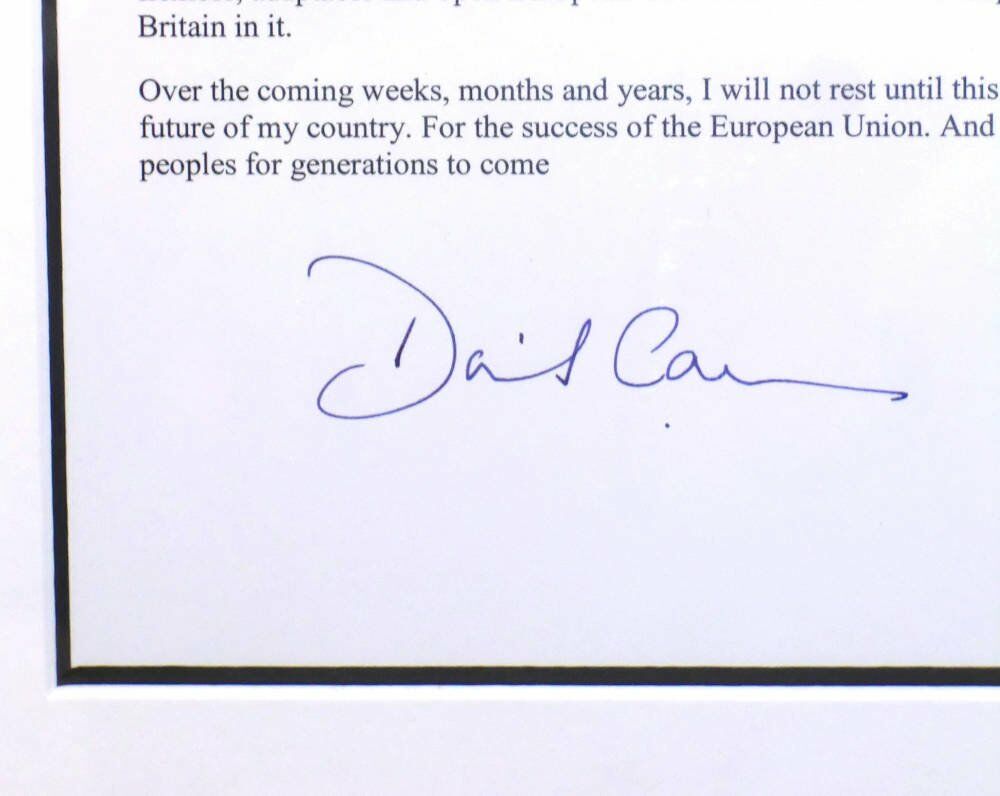 Britain in it.
Over the coming weeks, months and years, I will not rest until this
future of my country. For the success of the European Union. And
peoples for generations to come
David Cam